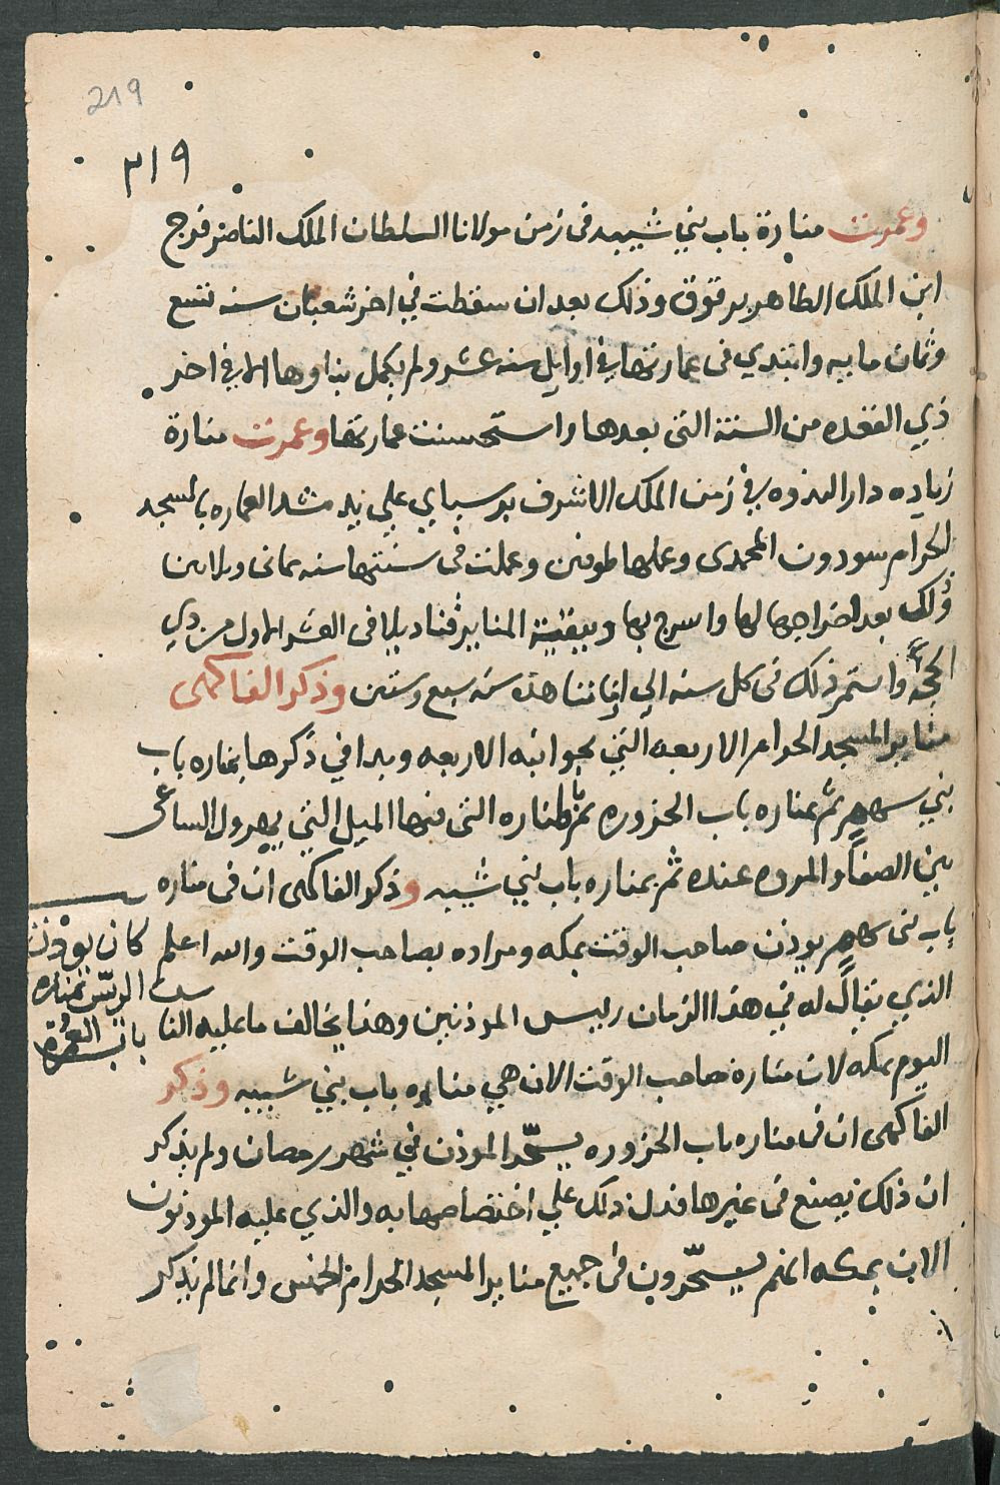 219
٣١٩
وعمرت منارة باب بني شيبه فى زمن مولانا السلطان الملك الناصر فرج
ابن الملك الظاهر برقوق وذلك بعد ان سقطت في اخر شعبان سنه تسع
وثمان مايه وابتدي فى عمارتها في اوايل سنه عشر ولم يكمل بناوها الا في اخر
ذي القعده من السنة التى بعدها واستحسنت عمارتها وعمرت منارة
زياده دار الندوه في زمن الملك الاشرف برسباي علي يد مشد العماره بالمسجد
الحرام سودون المحمدى وعملها طوفين وعملت فى سنتها سنه ثمانى وثلاثين
وذلك بعد اخراجها لها واسرج بها وببقية المناير قناديلا فى العشر الاول من ذي
الحجه واستمر ذلك فى كل سنه الي اننا هذه سنه سبع وستين وذكر الفاكهى
مناير المسجد الحرام الاربعه التي بجوانبه الاربعه وبدا في ذكرها بمناره باب
بني سهم ثم بمناره باب الحزوره ثم بالمناره التى فيها الميل التي يهرول الساعى
بين الصفا والمروه عنده ثم بمناره باب بني شيبه وذكر الفاكهى ان فى مناره
باب بنى سهم يوذن صاحب الوقت بمكه ومراده بصاحب الوقت والله اعلم
الذي يقال له في هذا الزمان رييس الموذنين وهذا يخالف ما عليه الناس
اليوم بمكه لان مناره صاحب الوقت الان هي مناره باب بني شيبه وذكر
الفاكهى ان فى مناره باب الحزوره يسحّر الموذن في شهر رمضان ولم يذكر
ان ذلك يصنع فى غيرها فدل ذلك علي اختصاصها به والذي عليه الموذنون
الان بمكه انهم يسحّرون فى جميع مناير المسجد الحرام الخمس وانما لم يذكر
كان يوذن
الريّس بمناره
باب العمرة